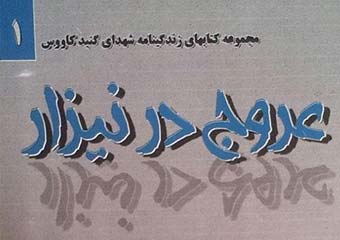 ۱
مجموعه کتابهای زندگینامه شهدای گنبد کاووس
عروج در نیزار